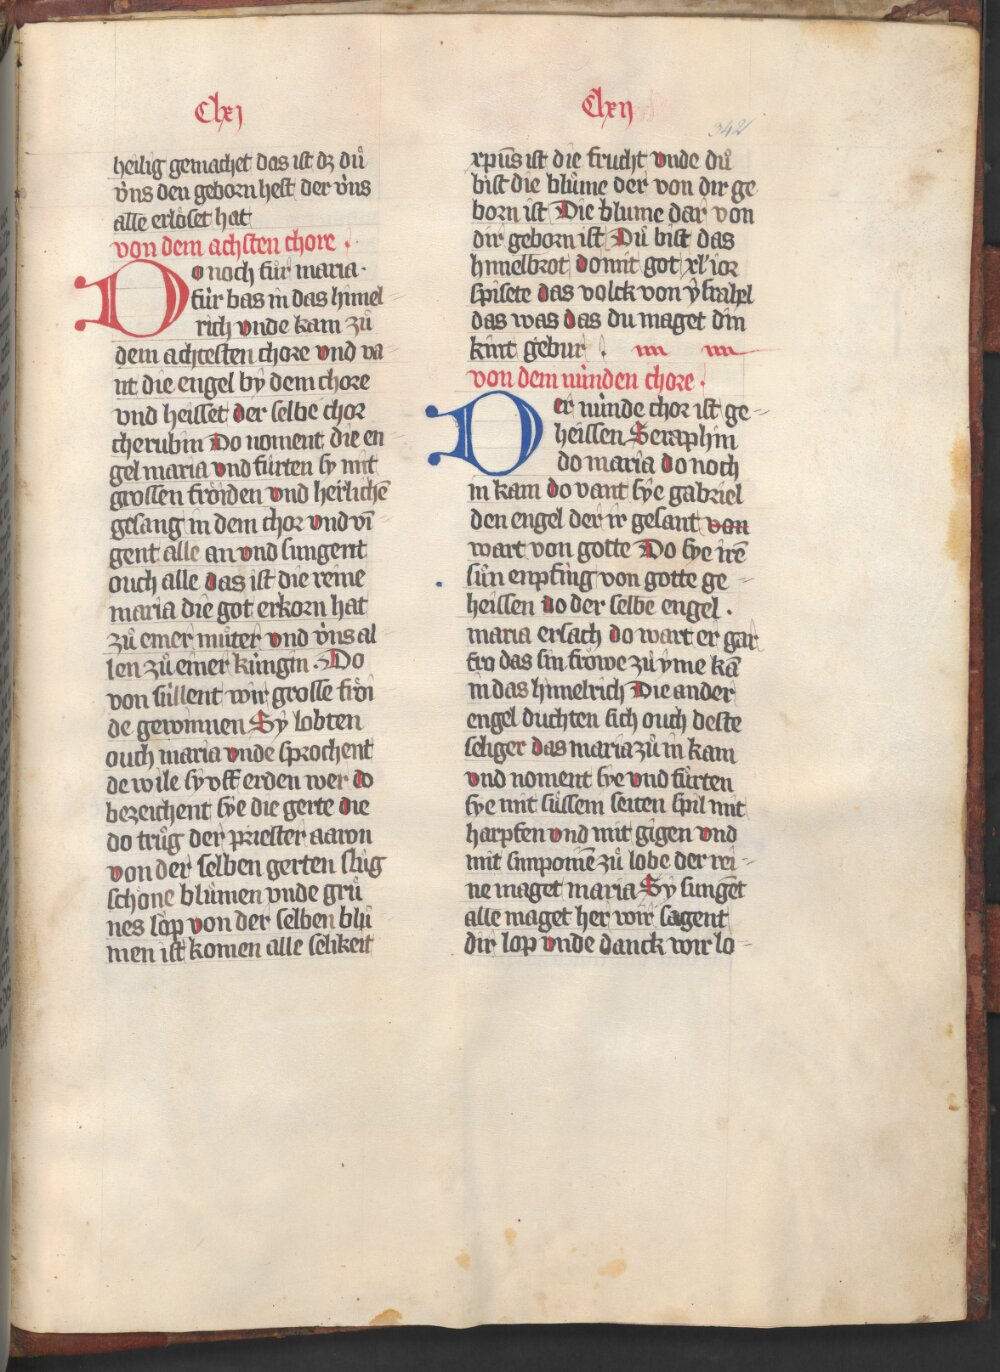 Clxj
heilig gemachet das ist dz dů
v̇ns den geborn hest der v̇ns
alle erlöset hat
von dem achsten chore .
Do noch fůr maria ·
fúr bas in das himel=
rich vnde kam zů
dem achtesten chore vnd va=
nt die engel bÿ dem chore
vnd heisset der selbe chor
cherubin Do noment die en=
gel maria vnd fürten sy mit
grossen fröiden vnd herlichē
gesang in dem chor vnd vī=
gent alle an vnd sungent
ouch alle das ist die reine
maria die got erkorn hat
zů einer můter vnd v̇ns al=
len zů einer kúngin . Do
von súllent wir grosse fröi=
de gewinnen Sÿ lobten
ouch maria vnde sprochent
de wile sÿ vff erden wer do
bezeichent sÿe die gerte die
do trůg der priester aaron
von der selben gerten slůg
schöne blůmen vnde grů
nes löp von der selben blů=
men ist komen alle selikeit
Clxij
342
xp̄us ist die frucht vnde dů
bist die blůme der von dir ge
born ist Die blume dar von
dir geborn ist Dů bist das
himelbrot do mit got xl ior
spisete das volck von ÿsrahel
das was das du maget din
kint gebur .
von dem núnden chore .
Der núnde chor ist ge=
heissen Seraphin
do maria do noch
in kam do vant sÿe gabriel
den engel der ir gesant von
wart von gotte Do sÿe irē
sůn enpfing von gotte ge=
heissen do der selbe engel .
maria ersach do wart er gar
fro das sin fröwe zů ÿme kā
in das himelrich Die ander
engel duchten sich ouch deste
seliger das maria zů in kam
vnd noment sÿe vnd fürten
sÿe mit süssem seiten spil mit
harpfen vnd mit gigen vnd
mit simponiē zů lobe der rei=
ne maget maria Sÿ sungēt
alle maget her wir sagent
dir lop vnde danck wir lo=